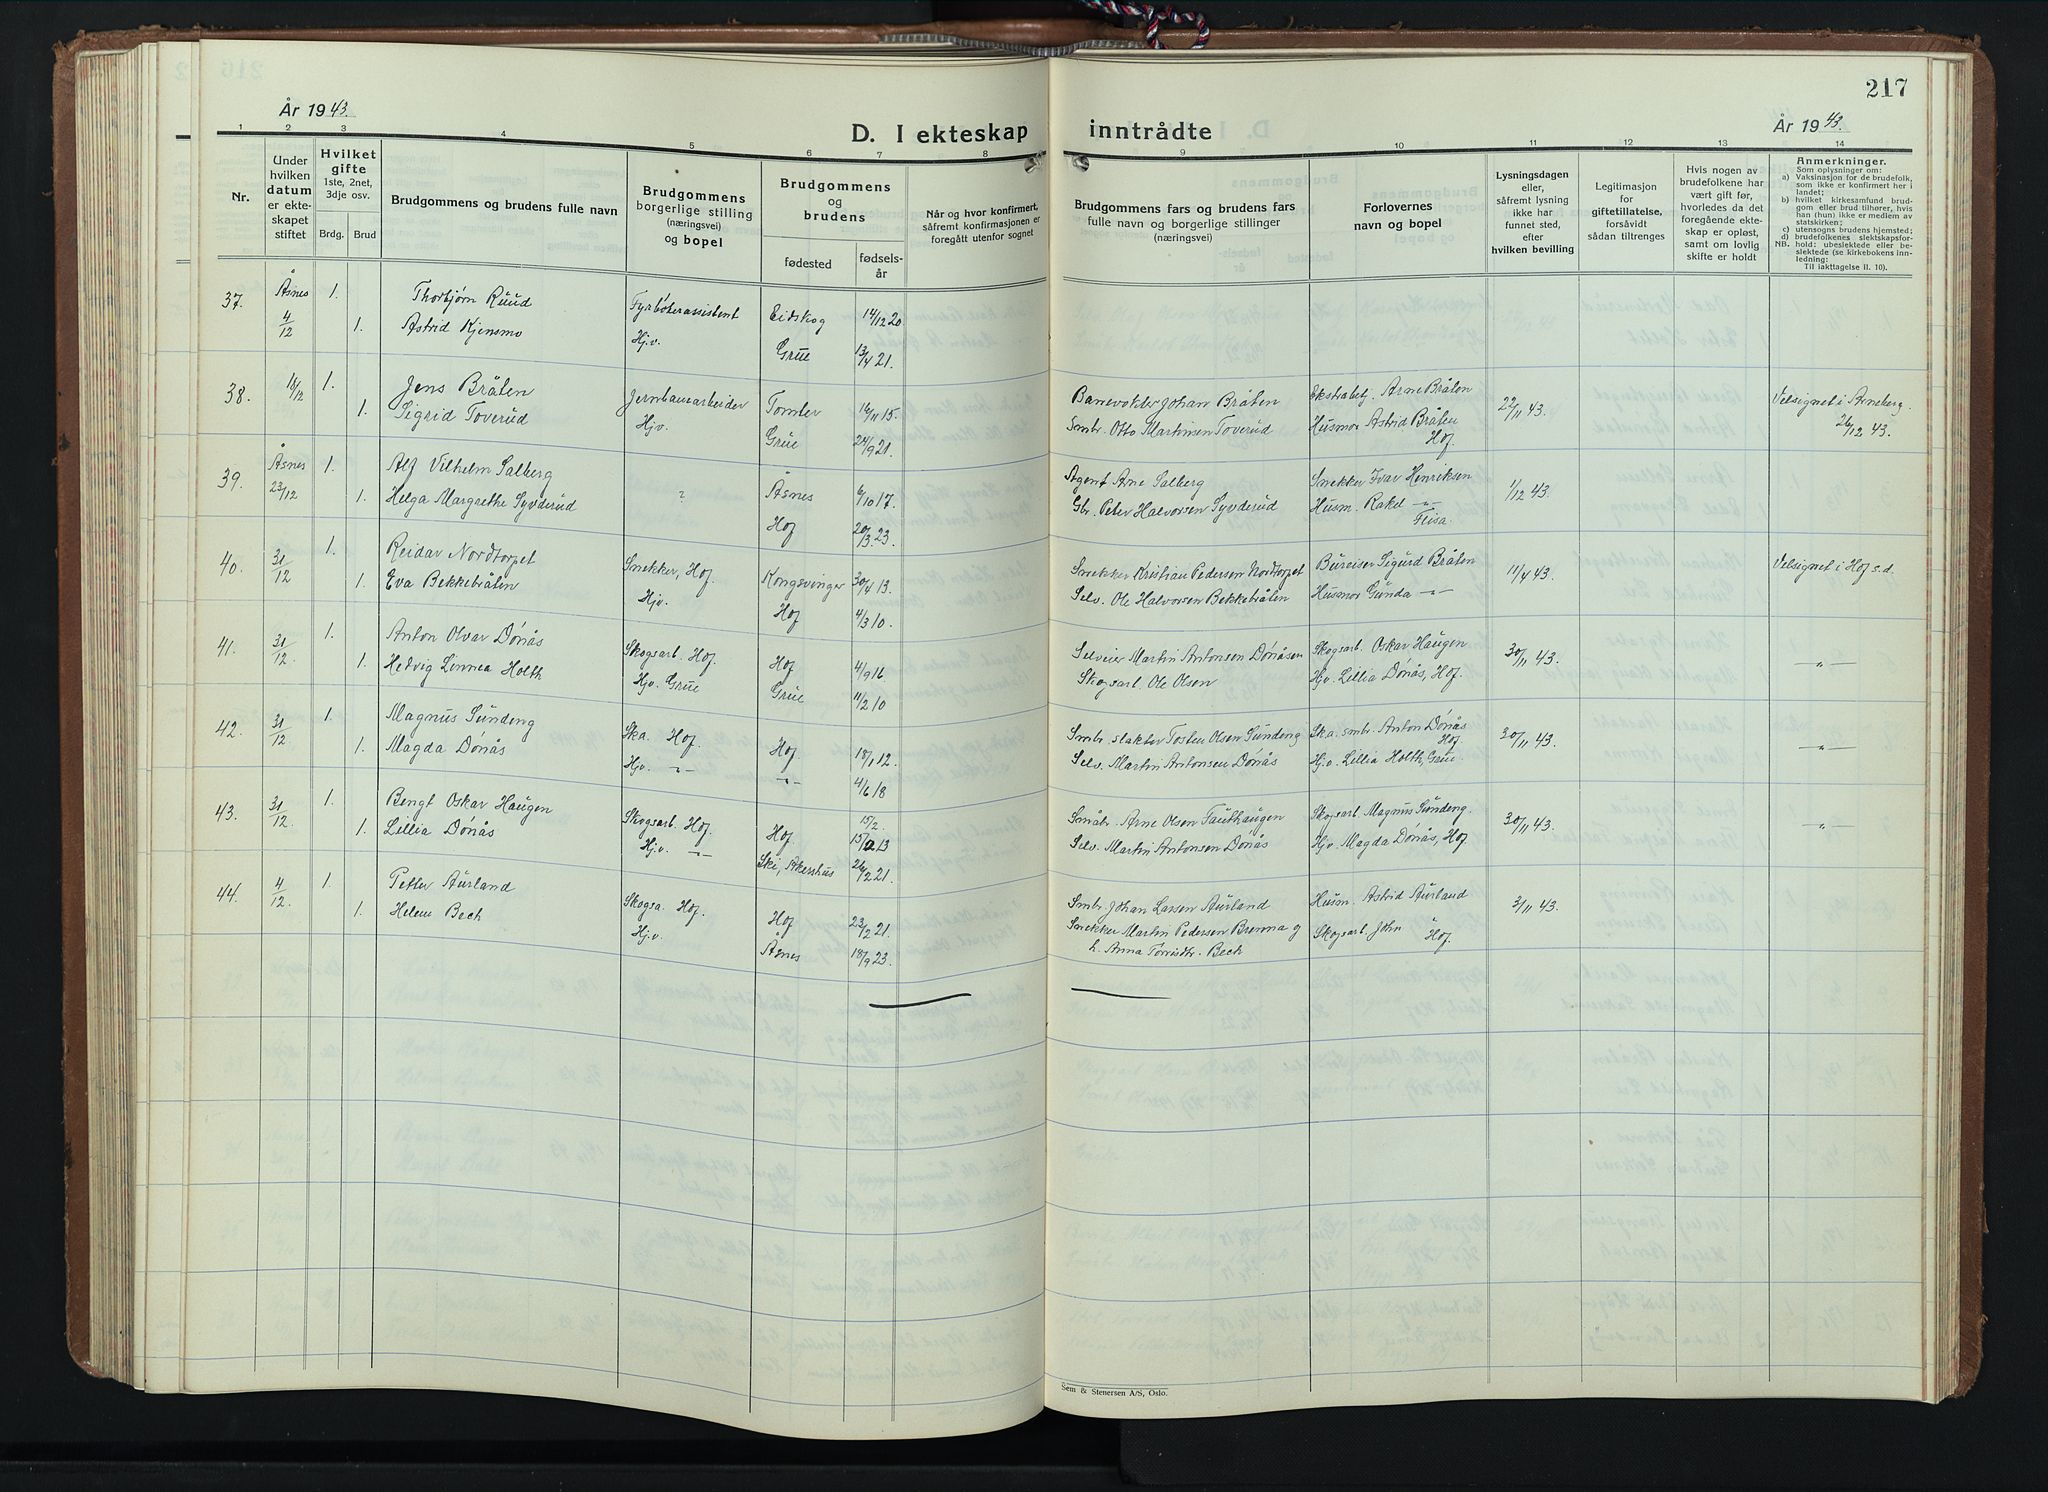 217
År 1943.
D. I ekteskap inntrådte
År 1943.
1 2 3 4 5 6 7 8 9 10 11 12 13 14
Nr.
Under hvilken datum er ekteskapet stiftet
Hvilket gifte 1ste, 2net, 3dje osv.
Brdg. Brud
Brudgommens og brudens fulle navn
Brudgommens borgerlige stilling (næringsvei) og bopel
Brudgommens og brudens
fødested
fødselsår
Når og hvor konfirmert, såfremt konfirmasjonen er foregått utenfor sognet
Brudgommens fars og brudens fars fulle navn og borgerlige stillinger (næringsvei)
Forlovernes navn og bopel
Lysningsdagen eller, såfremt lysning ikke har funnet sted, efter hvilken bevilling
Legitimasjon for giftetillatelse, forsåvidt sådan tiltrenges
Hvis nogen av brudefolkene har vært gift før, hvorledes da det foregående ekteskap er opløst, samt om lovlig skifte er holdt
Anmerkninger.
Som oplysninger om:
a) Vaksinasjon for de brudefolk, som ikke er konfirmert her i landet;
b) hvilket kirkesamfund brudgom eller brud tilhører, hvis han (hun) ikke er medlem av statskirken;
c) utensogns brudens hjemsted;
d) brudefolkenes slektskapsforhold: ubeslektede eller beslektede (se kirkebokens innledning:
NB. Til iakttagelse II. 10).
37. Åsnes 4/12 1. Thorbjørn Ruud Fyrbøterassistent Eidskog 14/12 20
1. Astrid Kjensmo Hjv. Grue 13/4 21.
38. 18/12 1. Jens Bråten Jernbanearbeider Tomter 16/11 15. Banevokter Johan Bråten Ekstrabetj. Arne Bråten 22/11 43. Velsignet i Arneberg
1. Sigrid Toverud Hjv. Grue 24/9 21. Smbr. Otto Martinsen Toverud Husmor Astrid Bråten Hof 26/12 43.
39. Åsnes 23/12 1. Alf Vilhelm Salberg ? Åsnes 6/10 17. Agent Arne Salberg Snekker Ivar Henriksen 1/12 43.
1. Helga Margrethe Syverud Hof 20/3. 23. Gbr. Peter Halvorsen Syverud Husm. Rakel -"- Flisa.
40. 31/12 1. Reidar Nordtorpet Snekker, Hof. Kongsvinger 30/4 13. Snekker Kristian Pedersen Nordtorpet Bureiser Sigurd Bråten 11/4 43. Velsignet i Hof s.d.
1. Eva Bekkebråten Hjv. Hof 4/3 10. Selv. Ole Halvorsen Bekkebråten Husmor Gunda -"-
41. 31/12. 1. Anton Olvar Dönås Skogsarb. Hof. Hof 4/9 16 Selveier Martin Antonsen Dönåsen Skogsarb. Oskar Haugen 30/11 43. -"-
1. Hedvig Linnea Holth Hjv. Grue Grue 11/2 10 Skogsarb. Ole Olsen Hjv. Lillia Dönås, Hof.
42. 31/12 1. Magnus Sundeng Ska. Hof. Hof. 18/1 12. Smbr. slakter Tosten Olsen Sundeng Ska. smbr. Anton Dönås Hof 30/11 43. -"-
1. Magda Dönås Hjv. -"- -"- 4/6 18 Selv. Martin Antonsen Dönås Hjv. Lillia Holth, Grue.
43. 31/12. 1. Bengt Oskar Haugen Skogsarb. Hof. Hof. 15/2. 15/2 13 Småbr. Arne Olsen Tauthaugen Skogsarb. Magnus Sundeng. 30/11 43. -"-
1. Lillia Dönås Hjv. -"- Ski, Akershus 26/2 21. Selv. Martin Antonsen Dönås Hjv. Magda Dönås, Hof.
44. 4/12. 1. Petter Aurland Skogsa. Hof. Hof 23/2 21. Smbr. Johan Larsen Aurland Husm. Astrid Aurland 3/11 43.
1. Helene Bech Hjv. Åsnes 18/9 23. Snekker Martin Pedersen Brenna og Skogsarb. John Hof.
h. Anna Torrisdtr. Bech
Sem & Stenersen A/S, Oslo.